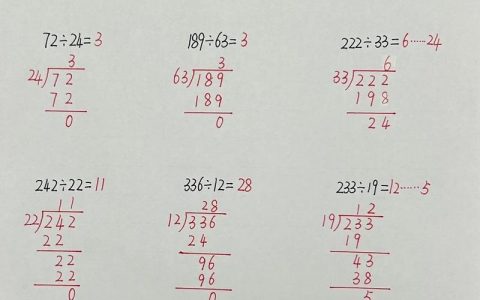 72÷24=3
3
24 72
72
0
189÷63=3
3
63 189
189
0
222÷33=6……24
6
33 222
198
24
242÷22=11
11
22 242
22
22
22
0
336÷12=28
28
12 336
24
96
96
0
233÷19=12……5
12
19 233
19
43
38
5